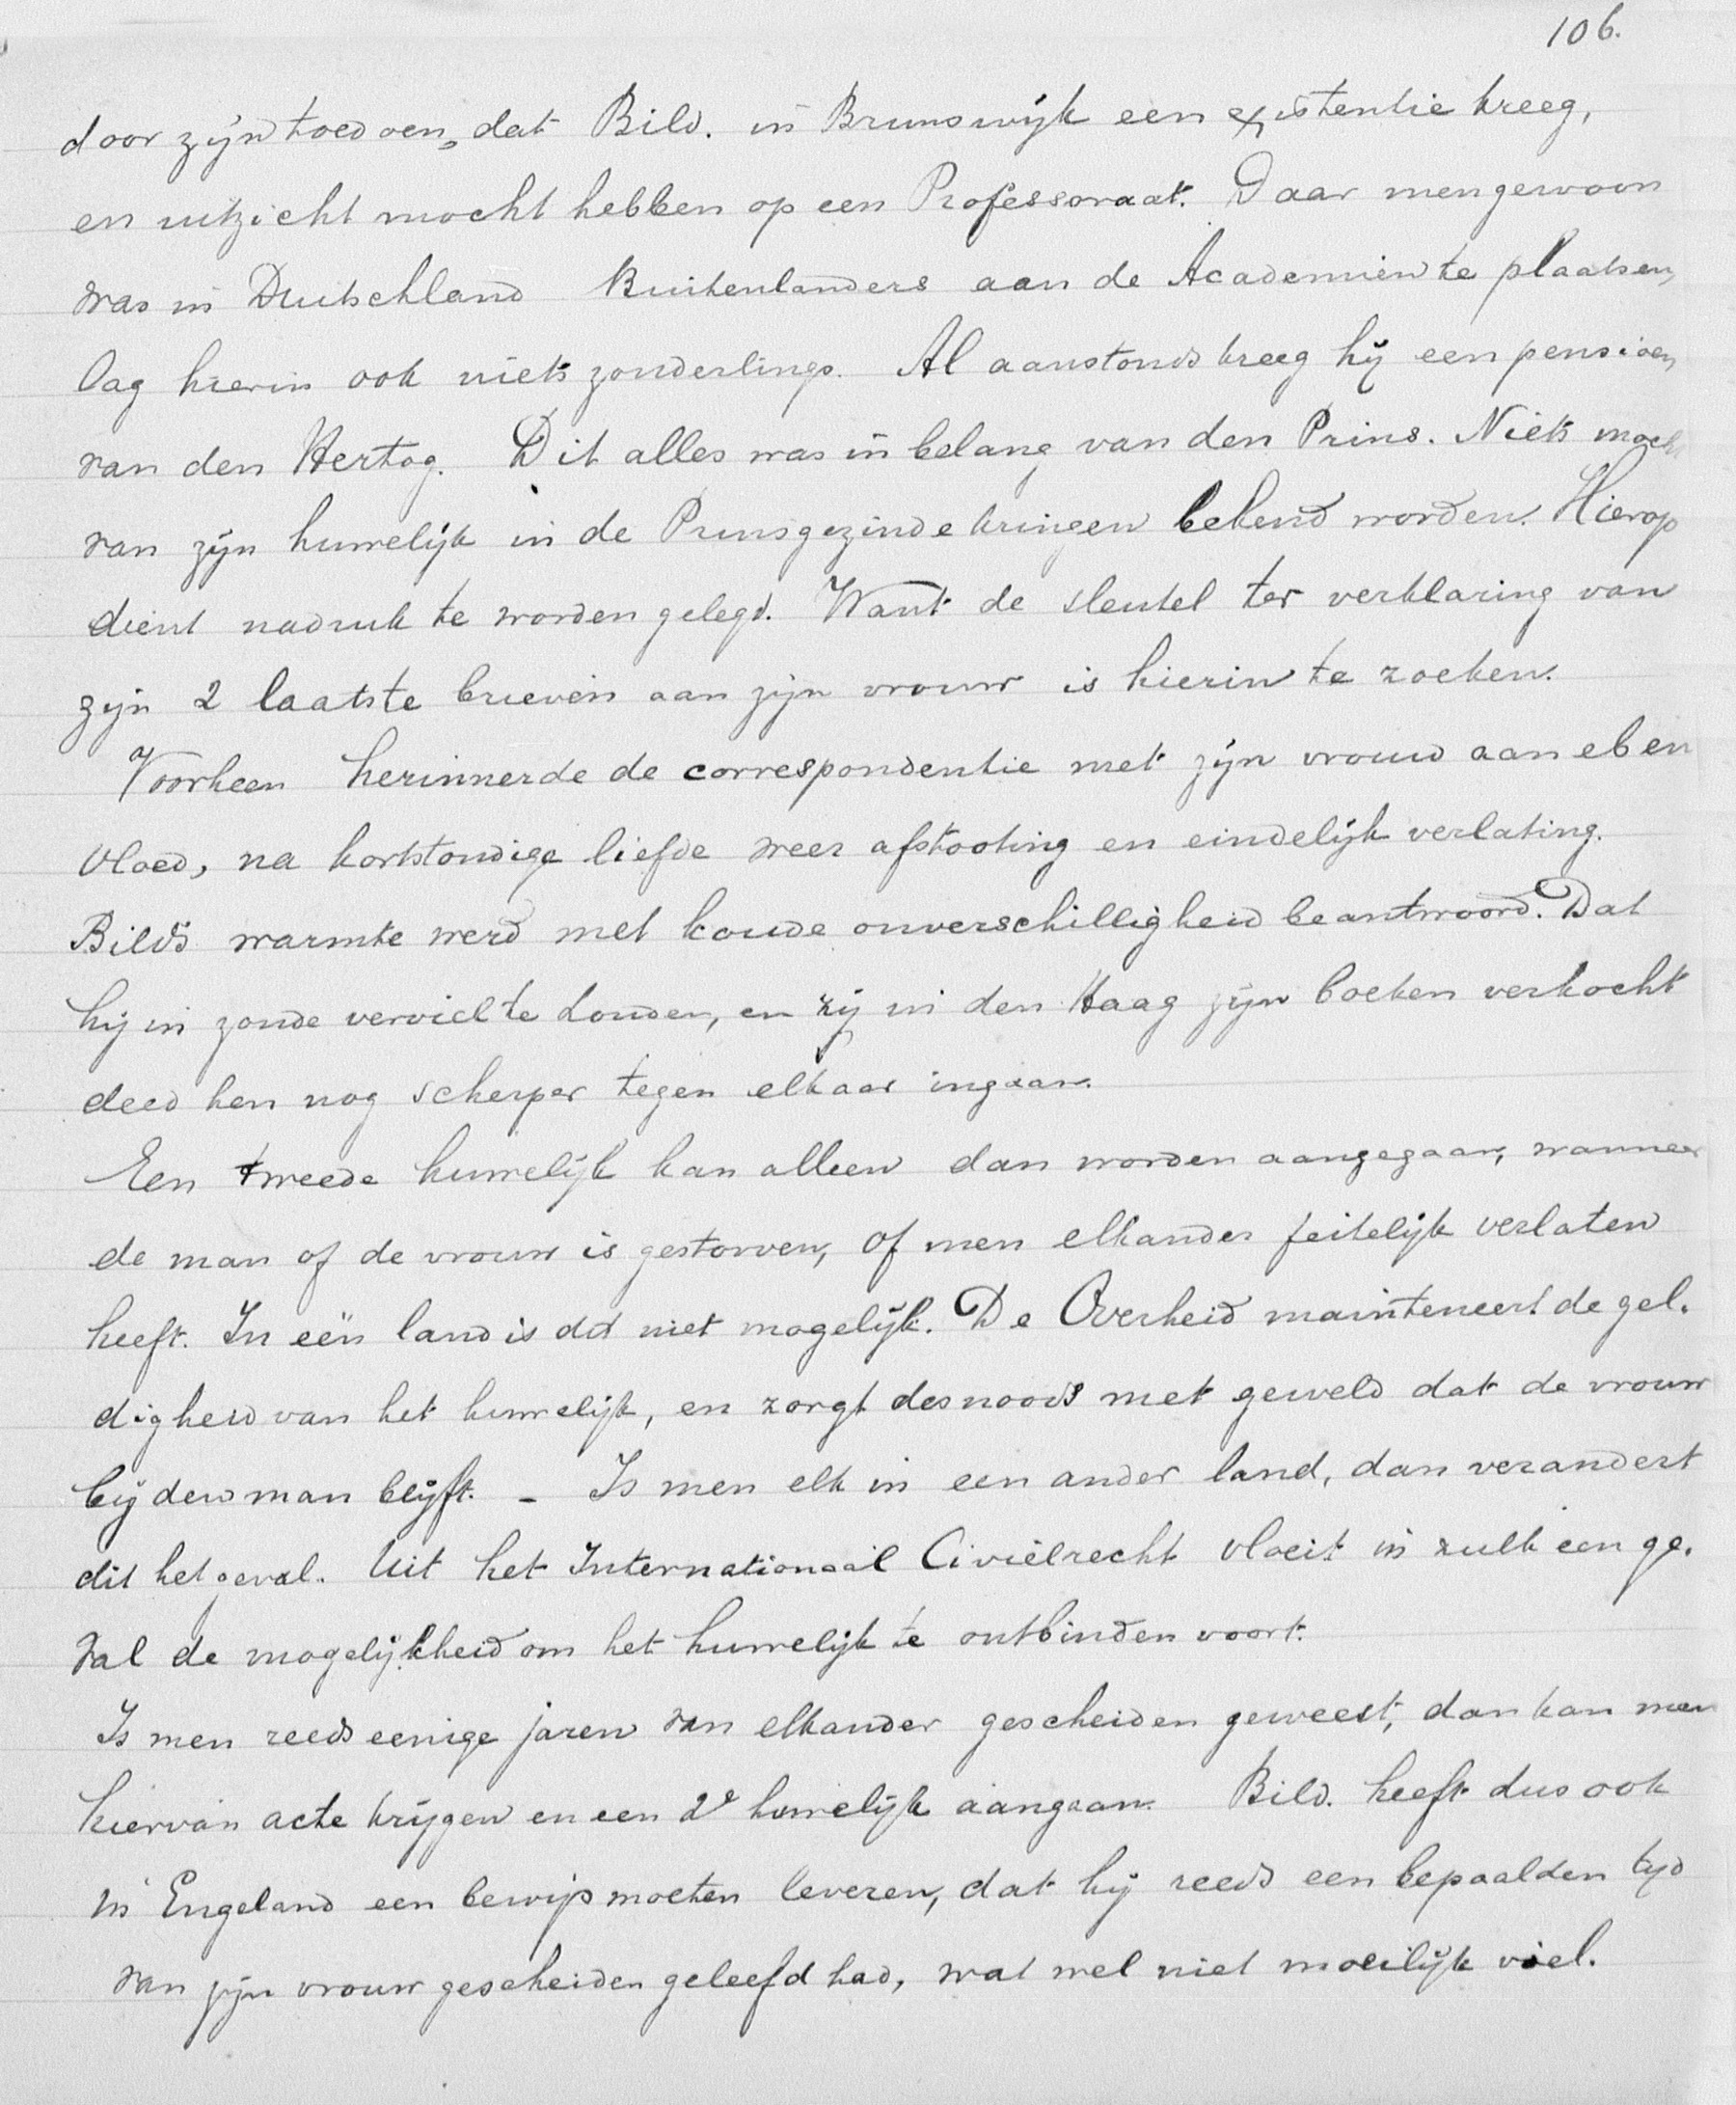 106.
door zijn toedoen, dat Bild. in Brunswijk een existentie kreeg,
en uitzicht mocht hebben op een Professoraat. Daar men gewoon
was in Duitschland Buitenlanders aan de Academiën te plaatsen,
lag hierin ook niets zonderlings. Al aanstonds kreeg hij een pensioen
van den Hertog. Dit alles was in belang van den Prins. Niets mocht
van zijn huwelijk in de Prinsgezinde kringen bekend worden. Hierop
dient nadruk te worden gelegd. Want de sleutel ter verklaring van
zijn 2 laatste brieven aan zijn vrouw is hierin te zoeken.
Voorheen herinnerde de correspondentie met zijn vrouw aan eb en
vloed, na kortstondige liefde weer afstooting en eindelijk verlating.
Bild's warmte werd met koude onverschilligheid beantwoord. Dat
hij in zonde verviel te Londen, en zij in den Haag zijn boeken verkocht
deed hen nog scherper tegen elkaar ingaan.
Een tweede huwelijk kan alleen dan worden aangegaan, wanneer
de man of de vrouw is gestorven, of men elkander feitelijk verlaten
heeft. In eën land is dit niet mogelijk. De Overheid mainteneert de gel-
digheid van het huwelijk, en zorgt desnoods met geweld dat de vrouw
bij den man blijft. - Is men elk in een ander land, dan verandert
dit het geval. Uit het Internationaal Civielrecht vloeit in zulk een ge-
val de mogelijkheid om het huwelijk te ontbinden voort.
Is men reeds eenige jaren van elkander gescheiden geweest, dan kan men
hiervan acte krijgen en een 2e huwelijk aangaan. Bild. heeft dus ook
in Engeland een bewijs moeten leveren, dat hij reeds een bepaalden tijd
van zijn vrouw gescheiden geleefd had, wat wel niet moeilijk viel.